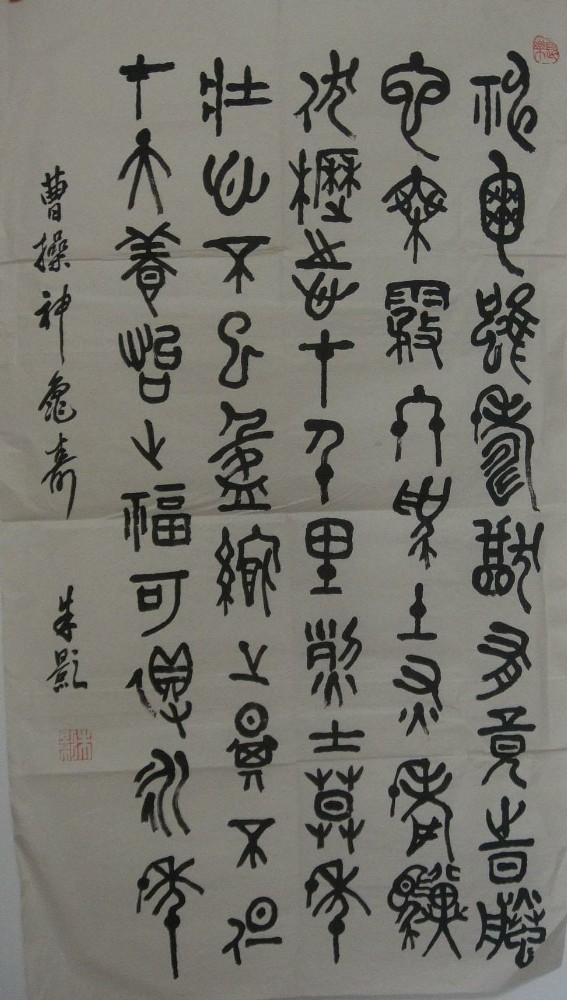 神龜雖壽猷有竟時騰
蛇乘霧終為土灰老驥
伏櫪志在千里烈士暮年
壯心不已盈縮之期不但
在天養怡之福可得永年
曹操神龜壽 朱影